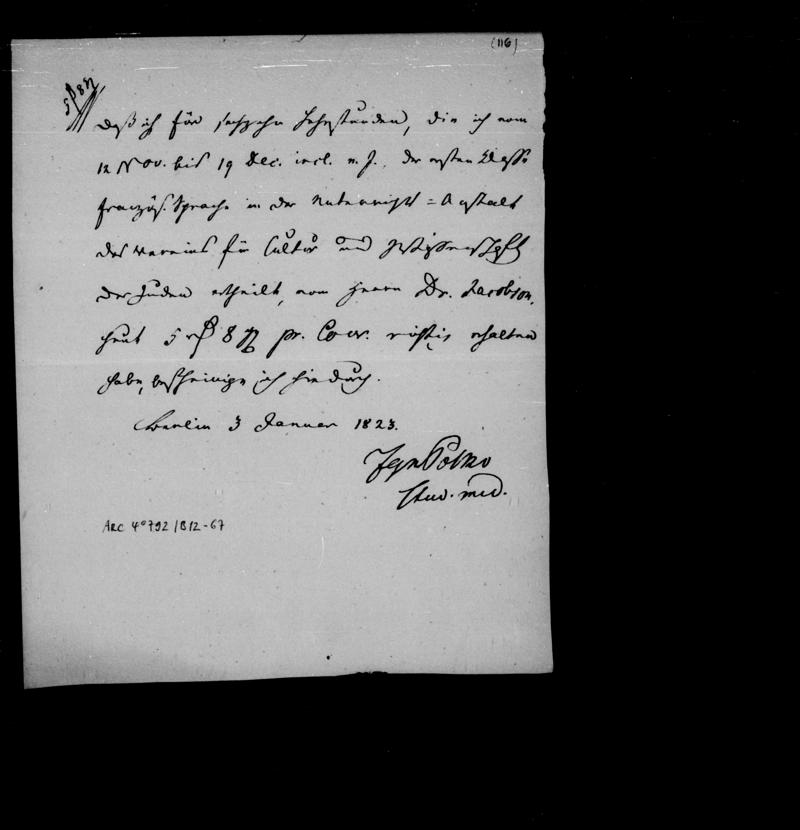 (116)
5 rß 8 gg
Daß ich für sechzehn Lehrstunden, die ich vom
12 Nov. bis 19 Dec. incl. v. J. der ersten Klasse
französ. Sprache in der Unterrichts=Anstalt
des Vereins für Cultur und Wissenschaft
der Juden ertheilt, vom Herrn Dr. Jacobson,
heut 5 rß 8 gg pr. Cour. richtig erhalten
habe, bescheinige ich hiedurch.
Berlin 3 Januar 1823.
stud. med.
ARC 4°792/B12-67